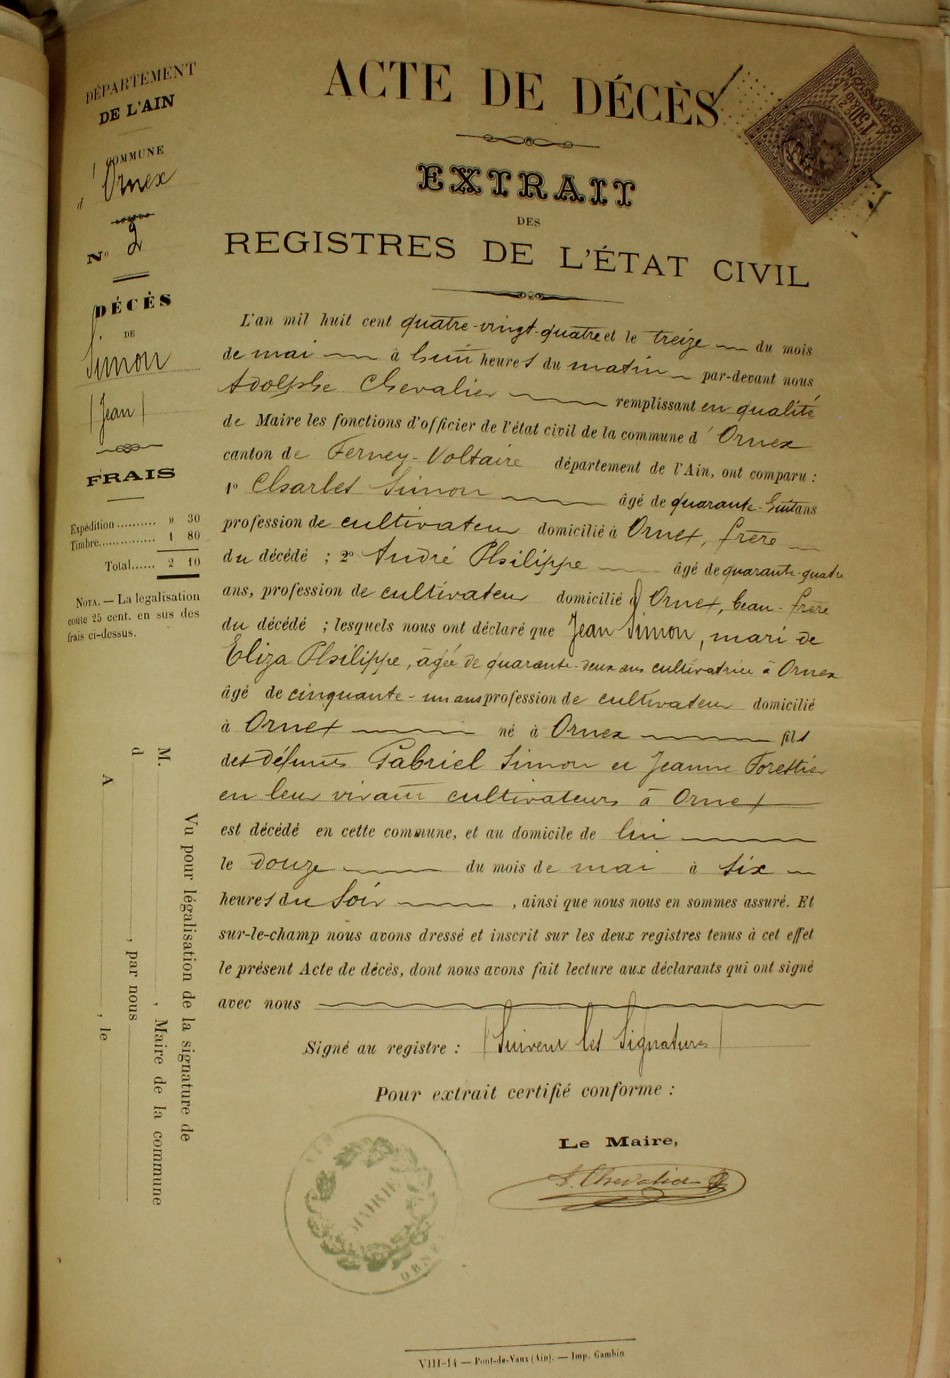 DÉPARTEMENT
DE L'AIN
COMMUNE
d'Ornex
N° 2
DÉCÈS
DE
Simon
(Jean)
FRAIS
Expédition .......... » 30
Timbre............... 1 80
Total...... 2 10
NOTA. — La légalisation
coûte 25 cent. en sus des
frais ci-dessus.
ACTE DE DÉCÈS
EXTRAIT
DES
REGISTRES DE L'ÉTAT CIVIL
L'an mil huit cent quatre-vingt-quatre et le treize du mois
de mai à huit heures du matin par-devant nous
Adolphe Chevalier remplissant en qualité
de Maire les fonctions d'officier de l'état civil de la commune d'Ornex
canton de Ferney-Voltaire département de l'Ain, ont comparu :
1° Charles Simon âgé de quarante-huit ans
profession de cultivateur domicilié à Ornex, frère
du décédé ; 2° André Philippe âgé de quarante-quatre
ans, profession de cultivateur domicilié à Ornex, beau-frère
du décédé ; lesquels nous ont déclaré que Jean Simon, mari de
Eliza Philippe, âgée de quarante-deux ans cultivatrice à Ornex
âgé de cinquante-un ans profession de cultivateur domicilié
à Ornex né à Ornex fils
des défunts Gabriel Simon et Jeanne Forestier
en leur vivant cultivateurs à Ornex
est décédé en cette commune, et au domicile de lui
le douze du mois de mai à six
heures du soir , ainsi que nous nous en sommes assuré. Et
sur-le-champ nous avons dressé et inscrit sur les deux registres tenus à cet effet
le présent Acte de décès, dont nous avons fait lecture aux déclarants qui ont signé
avec nous
Signé au registre : (Suivent les Signatures)
Pour extrait certifié conforme :
Le Maire,
A. Chevalier
MAIRIE
ORNEX
AIN
Vu pour légalisation de la signature de
M. , Maire de la commune
d , par nous
A , le
VIII-14 — Pont-de-Vaux (Ain). — Imp. Gambin